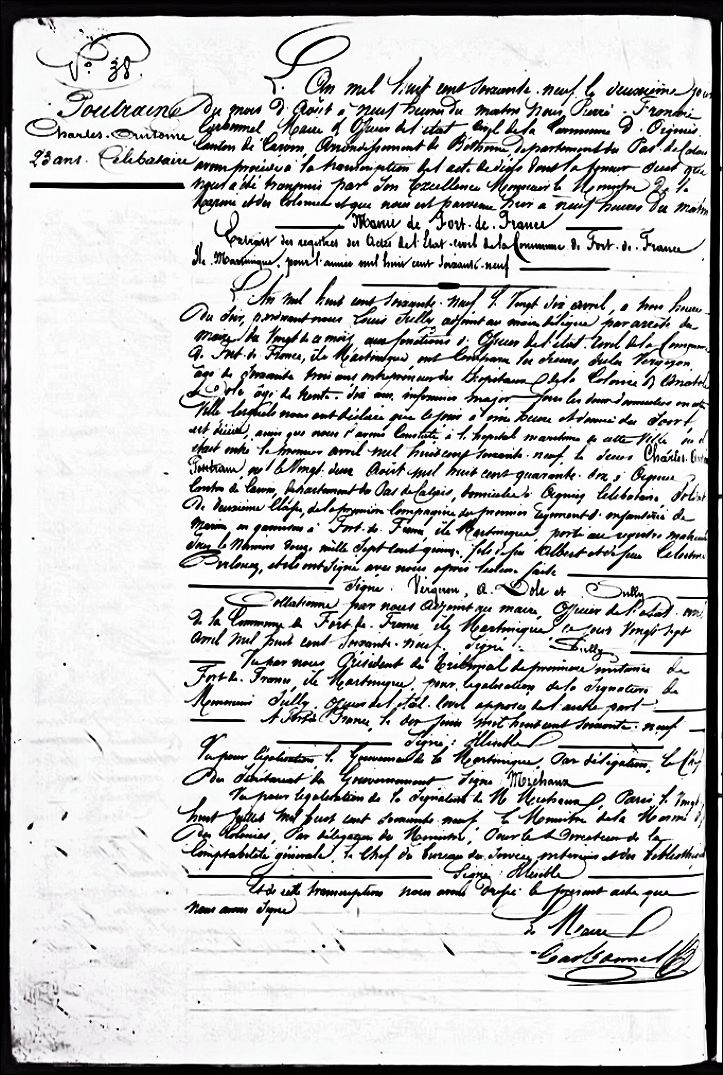 N° 38.
Poutrain
Charles-Antoine
23 ans. Célibataire
L'An mil huit cent soixante-neuf le deuxième jour
du mois d'Août à neuf heures du matin Nous Pierre François
Carbonnel Maire & Officier de l'état civil de la Commune d'Oignies
Canton de Carvin, Arrondissement de Béthune département du Pas de Calais
avons procédé à la transcription de l'acte de décès dont la teneur suit que
nous a été transmis par Son Excellence Monsieur le Ministre de la
Marine et des Colonies et que nous est parvenu hier à neuf heures du matin
Mairie de Fort-de-France
Extrait des registres des Actes de l'Etat-civil de la Commune de Fort-de-France
Ile Martinique, pour l'année mil huit cent soixante-neuf
L'An mil huit cent soixante-neuf le vingt six avril, à trois heures
du soir, pardevant nous Louis Sully, adjoint au maire délégué par arrêté du
maire du vingt de ce mois, aux fonctions d'Officier de l'état civil de la Commune
de Fort-de-France, île Martinique ont comparu les sieurs Jules Vergnon,
âgé de soixante trois ans entrepreneur des hôpitaux de la Colonie & Anatole
Dole, âgé de trente ans, infirmier major tous les deux domiciliés en cette
Ville lesquels nous ont déclaré que le jour à une heure et demie du soir,
est décédé, ainsi que nous l'avons constaté à l'hôpital maritime de cette Ville où il
était entré le premier avril mil huit cent soixante-neuf le sieur Charles-Antoine
Poutrain né le vingt deux Août mil huit cent quarante à Oignies,
Canton de Carvin, département du Pas de Calais, domicilié à Oignies Célibataire, Soldat
de deuxième Classe, de la première Compagnie du premier régiment d'infanterie de
Marine en garnison à Fort-de-France, île Martinique, porté au registre matricule
sous le Numéro douze mille sept cent quinze, fils de feu Albert et de feue Célestine
et ils ont signé avec nous après lecture faite
Signé: Vergnon, A. Dole et Sully
Collationné par nous Adjoint au maire, Officier de l'état civil
de la Commune de Fort-de-France île Martinique ce jour vingt sept
avril mil huit cent soixante-neuf. Signé: Sully
Vu par nous Président du Tribunal de première instance de
Fort-de-France, île Martinique, pour légalisation de la signature de
Monsieur Sully, Officier de l'état civil apposée de l'autre part
A Fort-de-France, le dix Juin mil huit cent soixante-neuf
Signé:
Vu pour légalisation le Gouverneur de la Martinique, Par délégation, le Chef
du Secrétariat du Gouvernement Signé Michaux
Vu pour légalisation de la Signature de Mr Michaux, Paris le Vingt
huit Juillet mil huit cent soixante-neuf. Le Ministre de la Marine &
des Colonies, Par délégation du Ministre, Pour le Directeur de la
Comptabilité générale, le Chef du bureau du Service intérieur et des bibliothèques
Signé
Et de cette transcription nous avons dressé le présent acte que
nous avons signé
Le Maire
Carbonnel